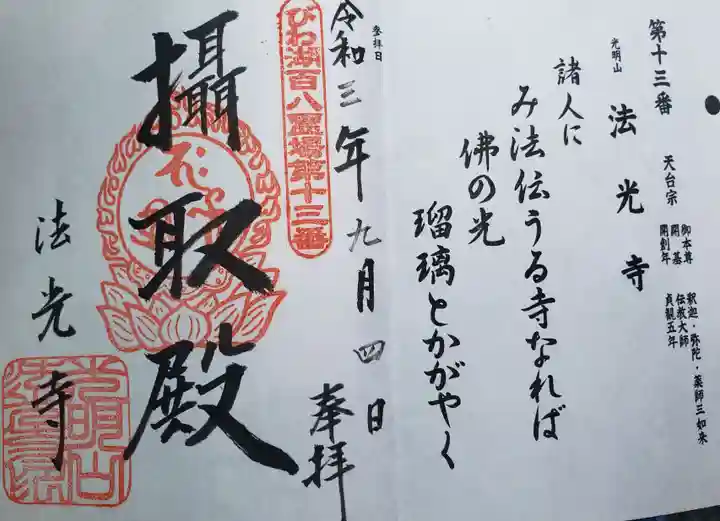 第十三番 天台宗
御本尊 釈迦・弥陀・薬師三如来
開基 伝教大師
開創年 貞観五年
光明山
法光寺
諸人に
み法伝うる寺なれば
佛の光
瑠璃とかがやく
参拝日
令和三年九月四日
奉拝
びわ湖百八霊場第十三番
攝取殿
法光寺
光明山